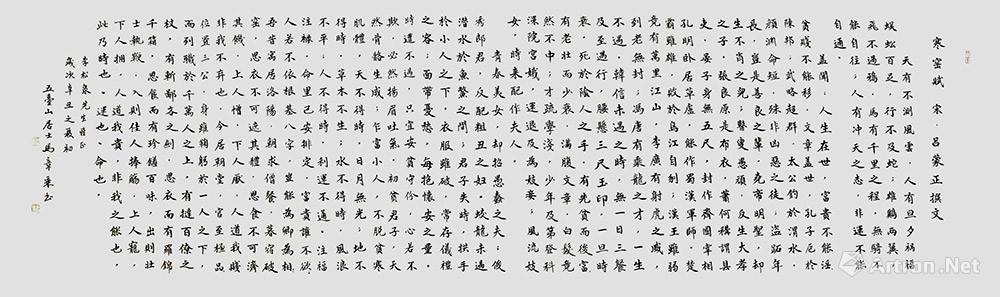 寒窯賦 宋·呂蒙正撰文
天有不測風雲，人有旦夕禍福
蜈蚣百足，行不及蛇；雄鷄兩翼，
飛不過鴉。馬有千里之程，無騎不
能自往；人有冲天之志，非運不能
自通。
蓋聞：人生在世，富貴不能淫，
貧賤不能移。文章蓋世，孔子厄於
陳邦；武略超群，太公釣於渭水。
顏淵命短，殊非凶惡之徒；盜跖年
長，豈是善良之輩。堯帝明聖，却
生不肖之兒；瞽叟愚頑，反生大孝
之子。張良原是布衣，蕭何稱謂縣
吏。晏子身無五尺，封作齊國宰相；
孔明卧居草廬，能作蜀漢軍師。楚
霸雖雄，敗於烏江自刎；漢王雖弱，
竟有萬里江山。李廣有射虎之威，
到老無封；馮唐有乘龍之才，一生
不遇。韓信未遇之時，無一日三餐，
及至遇行，腰懸三尺玉印，一旦時
衰，死於陰人之手。有先貧而後富，
有老壯而少衰。滿腹文章，白髮竟
然不中；才疏學淺，少年及第登科。
深院宮娥，運退反為妓妾；風流妓
女，時來配作夫人。
青春美女，却招愚蠢之夫；俊
秀郎君，反配粗丑之婦。蛟龍未遇，
潛水於魚鱉之間；君子失時，拱手
於小人之下。衣服雖破，常存儀禮
之容；面帶憂愁，每抱懷安之量。
時遭不遇，只宜安貧守份；心若不
欺，必然揚眉吐氣。初貧君子，天
然骨骼生成；乍富小人，不脫貧寒
肌體。天不得時，日月無光；地不
得時，草木不生；水不得時，風浪
不平；人不得時，利運不通。注福
注祿，命里已安排定，富貴誰不欲。
人若不依根基八字，豈能為卿為相？
吾昔寓居洛陽，朝求僧餐，暮宿破
窑，思衣不可遮其體，思食不可濟
其饑，上人憎，下人厭，人道我賤，
非我不弃也。今居朝堂，官至極品，
位置三公，身雖鞠躬於一人之下，
而列職於千萬人之上，有撻百僚之
杖，有斬鄙吝之劍，思衣而有羅錦
千箱，思食而有珍饈百味，出則壯
士執鞭，入則佳人捧觴，上人寵，
下人擁。人道我貴，非我之能也，
此乃時也、運也、命也。
李松泉先生雅正
歲次辛丑之夏初
五臺山居士馬章乘書
Artron.Net